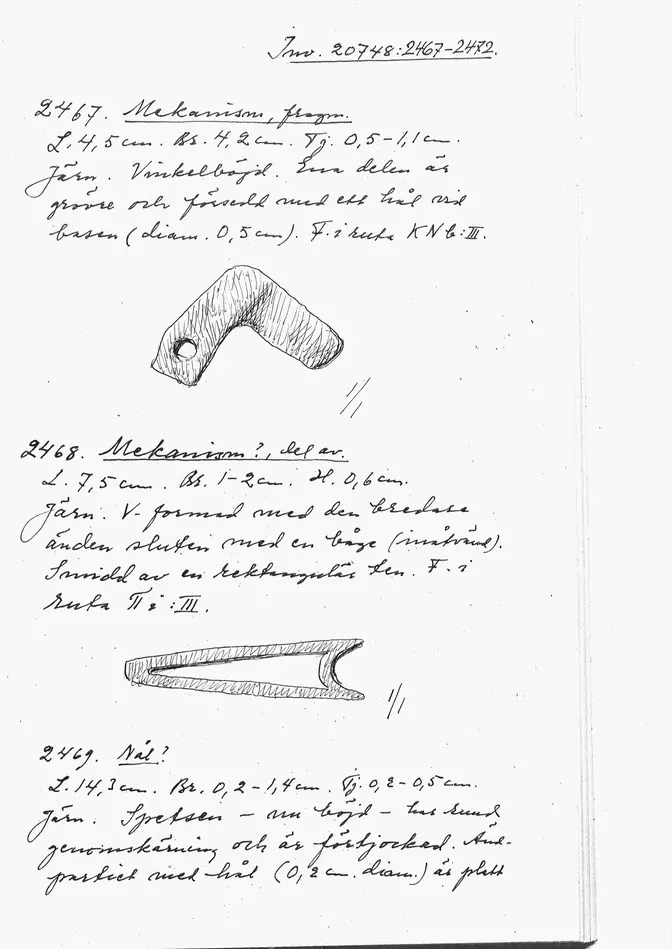 Inv. 20748:2467-2472.
2467. Mekanism, fragm.
L. 4,5 cm. Br. 4,2 cm. Tj. 0,5-1,1 cm.
Järn. Vinkelböjd. Ena delen är
grövre och försedd med ett hål vid
basen (diam. 0,5 cm). F. i ruta KNb:III.
1/1
2468. Mekanism?, del av.
L. 7,5 cm. Br. 1-2 cm. H. 0,6 cm.
Järn. V-formad med den bredare
änden sluten med en båge (inåtvänd).
Smidd av en rektangulär ten. F. i
ruta Πi:III.
1/1
2469. Nål?
L. 14,3 cm. Br. 0,2-1,4 cm. Tj. 0,2-0,5 cm.
Järn. Spetsen - nu böjd - har rund
genomskärning och är förtjockad. Änd-
partiet med hål (0,2 cm. diam.) är platt